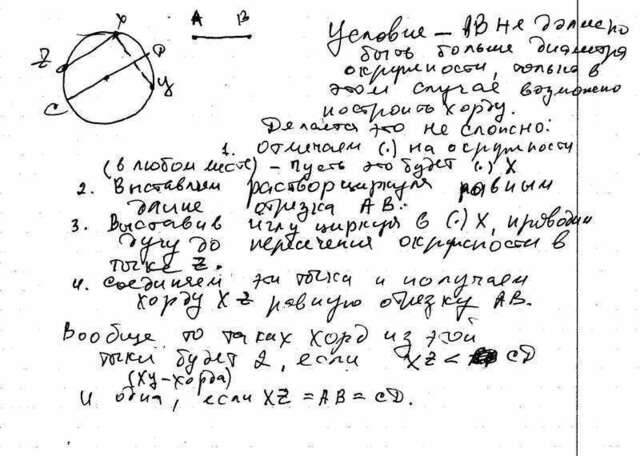 X
A B
Z
D
C
y
Условие – AB не должно
быть больше диаметра
окружности, только в
этом случае возможно
построить хорду.
Делается это не сложно:
1. Отмечаем (.) на окружности
(в любом месте) – пусть это будет (.) X
2. Выставляем раствор циркуля равным
длине отрезка AB.
3. Выставив иглу циркуля в (.) X, проводим
дугу до пересечения окружности в
точке Z.
4. Соединяем эти точки и получаем
хорду XZ равную отрезку AB.
Вообще то таких хорд из этой
точки будет 2, если XZ < CD
(Xy – хорда)
И одна, если XZ = AB = CD.